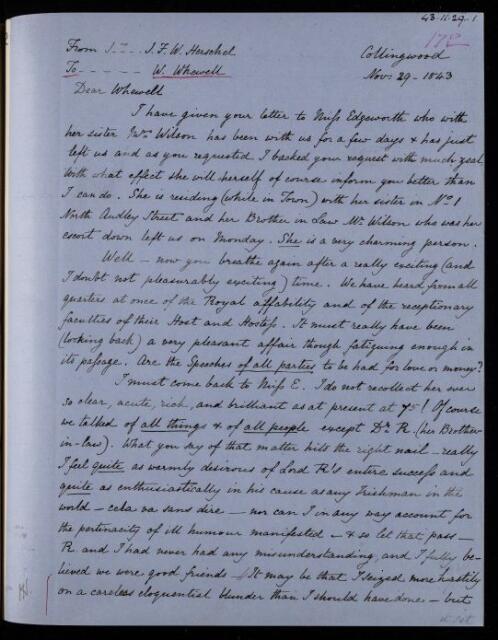 43.11.29.1
178
From J. F. W. Herschel
Collingwood
To W. Whewell
Nov. 29 - 1843
Dear Whewell
I have given your letter to Miss Edgeworth who with
her sister Mrs. Wilson has been with us for a few days & has just
left us and as you requested I backed your request with much zeal
With what effect she will herself of course inform you better than
I can do. She is residing (while in Town) with her sister in No 1
North Audley Street and her Brother in Law Mr. Wilson who was her
escort down left us on Monday. She is a very charming person.
Well - now you breathe again after a really exciting (and
I doubt not pleasurably exciting) time. We have heard from all
quarters at once of the Royal affability and of the receptionary
faculties of their Host and Hostess. It must really have been
(looking back) a very pleasant affair though fatiguing enough in
its passage. Are the Speeches of all parties to be had for love or money?
I must come back to Miss E. I do not recollect her ever
so clear, acute, rich, and brilliant as at present at 75! Of course
we talked of all things & of all people except Dr. R. (her Brother-
in-law). What you say of that matter hits the right nail - really
I feel quite as warmly desirous of Lord R's entire success and
quite as enthusiastically in his cause as any Irishman in the
world - cela va sans dire - nor can I in any way account for
the pertinacity of ill humour manifested - & so let that pass -
R. and I had never had any misunderstanding, and I fully be-
lieved we were good friends - It may be that I seized more hastily
on a careless eloquential blunder than I should have done - but